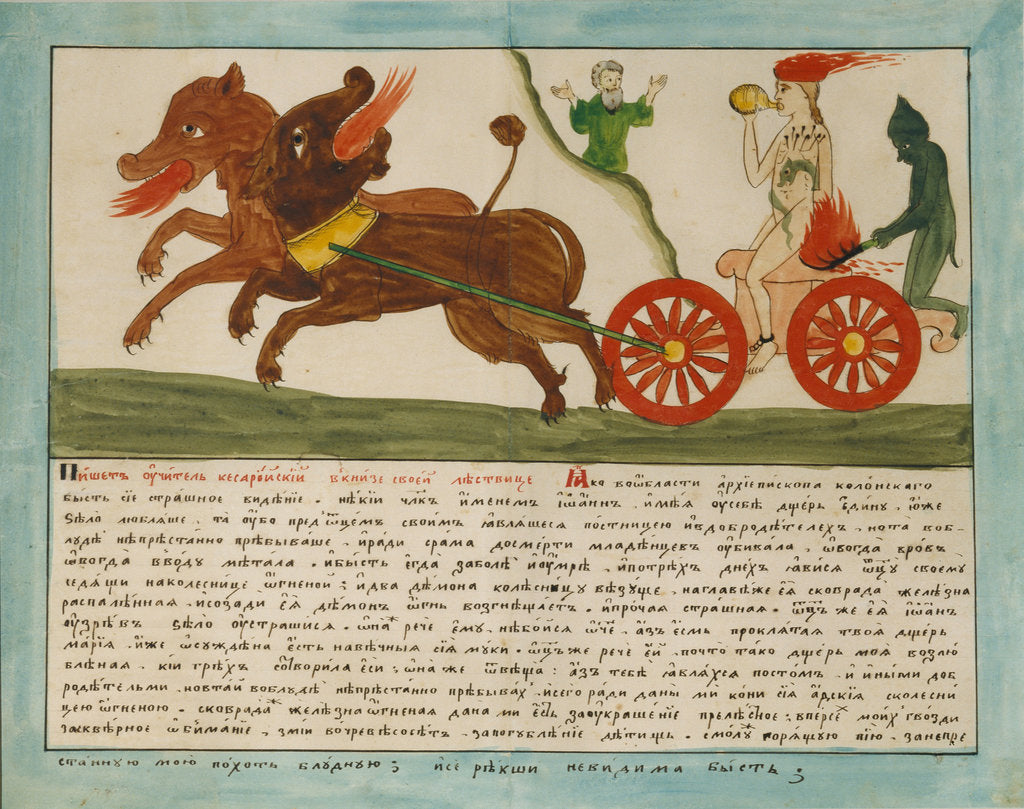 Пи́шетъ ѹ҆чи́тель кесарі́йскій в кни́зе свое́й лѣ́ствице Ꙗ҆ко во ѻ҆́бласти а҆рхїепи́скопа коло́нскаго
бысть сїе́ стра́шное виде́нїе . нѣ́кїй чл҃къ и҆́менемъ і҆ѡа́ннъ . и҆мѣ́я ѹ҆ себѣ̀ дще́рь є҆ди́ну . ю҆́же
ѕѣло̀ любля́ше . та̀ ѹ҆́бо пред ѻ҆тце́мъ свои́мъ ꙗ҆вля́шеся по́стницею и҆ в доброде́телехъ , но та́й воб-
лудѣ̀ непреста́нно пребыва́ше . и҆ ра́ди сра́ма до сме́рти младе́нцевъ ѹ҆бива́ла . ѻ҆вогда̀ в ро́въ
ѻ҆вогда̀ в во́ду мета́ла . и҆ бы́сть є҆гда̀ заболѣ̀ и҆ ѹ҆́мре . и҆ по трѐхъ дне́хъ ꙗ҆ви́ся ѻ҆тц҃у̀ своему̀
седя́щи на колесни́це ѻ҆́гненой : и҆ два де́мона колесни́цу везу́ще . на главе́ же є҆я̀ сковрада̀ желе́зна
распале́нная . и҆ созадѝ є҆я̀ де́монъ ѻ҆́гнь возгнеща́етъ . и҆ про́чая стра́шная . ѻ҆тц҃ъ же є҆я̀ і҆ѡа́нъ
ѹ҆зре́въ ѕѣло̀ ѹ҆страши́ся . ѻ҆на́ ж речѐ є҆му̀ . не бо́йся ѻ҆́тче . а҆́зъ є҆́смь прокля́тая твоя̀ дще́рь
марі́я . и҆́же ѡ҆сужде́на є҆́сть на ве́чныя сїя̀ му́ки . ѻ҆тц҃ъ же речѐ є҆́й . почто̀ та́ко дще́рь моя̀ возлю
бле́ная . кі́й гре́хъ сотвори́ла є҆сѝ : ѻ҆на́ же ѿвѣща̀ : а҆́зъ тебѣ̀ ꙗ҆вля́хся посто́мъ . и҆ и҆ны́ми доб
роде́тельми . но вта́й во блудѣ̀ непреста́нно пребыва́х . и҆ сего̀ ра́ди даны̀ мѝ ко́ни сїя̀ а҆́дскїя с колесни
цею ѻ҆́гненою . сковрада́ ж желе́зна ѻ҆́гненая дана̀ ми є҆́сть за ѹ҆краше́нїе преле́сное : в пе́рсех мои́х гво́зди
за скве́рное ѻ҆бима́нїе . змі́й во чре́ве сосе́тъ . за погубле́нїе де́тищь . смолу́ ж горя́щую пїю̀ . за непре
ста́нную мою̀ по́хоть блу́дную ; и҆ сѐ ре́кши неви́дима бы́сть ;